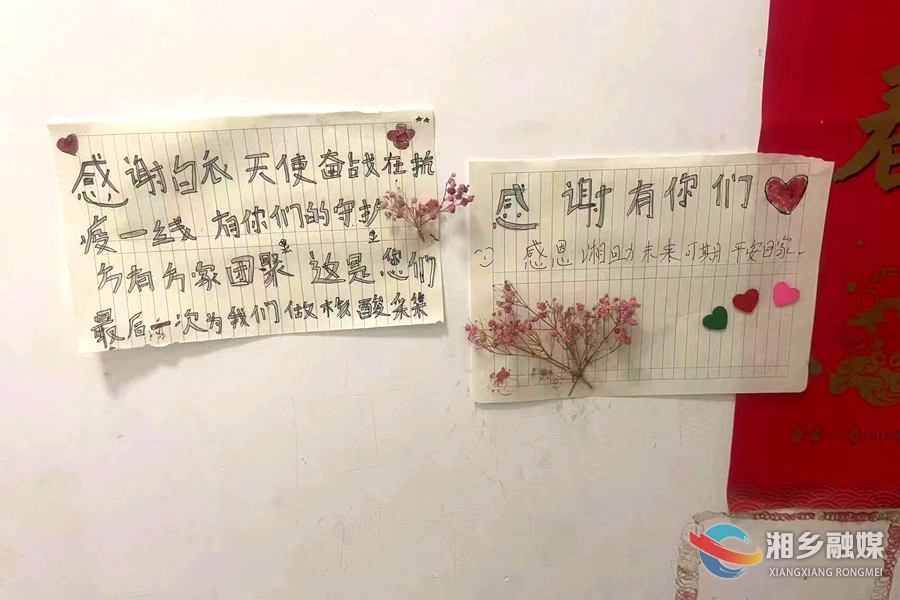 感谢白衣天使奋战在抗
疫一线 有你们的守护
方有万家团聚 这是您们
最后一次为我们做核酸采集
感谢有你们
感恩 湘回力 未来可期 平安回家.
春
湘乡融媒
XIANGXIANG RONGMEI